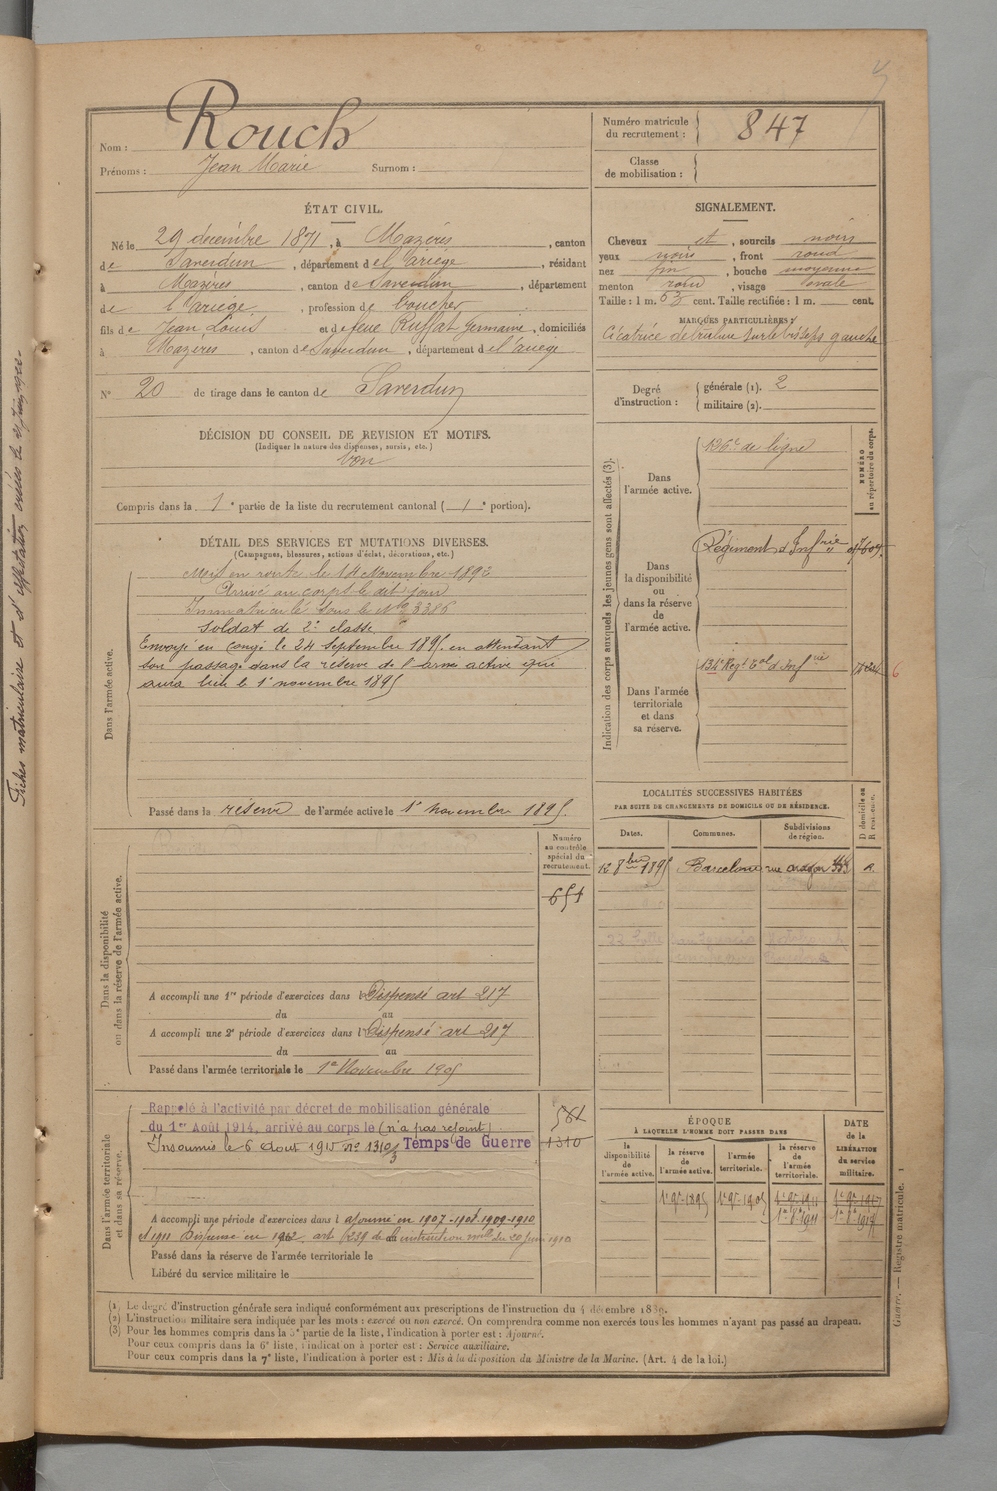 Fiches matriculaire et d'affectation
Nom : Rouch
Prénoms : Jean Marie Surnom :
Numéro matricule du recrutement : 847
Classe de mobilisation :
ÉTAT CIVIL.
Né le 29 décembre 1871, à Mazères, canton
de Saverdun, département de l'Ariège, résidant
à Mazères, canton de Saverdun, département
de l'Ariège, profession de boucher
fils de Jean Louis et de feue Ruffat Germaine, domiciliés
à Mazères, canton de Saverdun, département de l'Ariège
N° 20 de tirage dans le canton de Saverdun
SIGNALEMENT.
Cheveux et, sourcils noirs
yeux noirs, front rond
nez fin, bouche moyenne
menton rond, visage ovale
Taille : 1 m. 63 cent. Taille rectifiée : 1 m. cent.
MARQUES PARTICULIÈRES :
Cicatrice de brulure sur le bisseps gauche
Degré d'instruction : générale (1). 2
militaire (2).
DÉCISION DU CONSEIL DE REVISION ET MOTIFS.
(Indiquer la nature des dispenses, sursis, etc.)
bon
Compris dans la 1e partie de la liste du recrutement cantonal ( 1e portion).
DÉTAIL DES SERVICES ET MUTATIONS DIVERSES.
(Campagnes, blessures, actions d'éclat, décorations, etc.)
Dans l'armée active.
Mis en route le 14 Novembre 1892
Arrivé au corps le dit jour
Immatriculé sous le N° 3386
Soldat de 2e classe
Envoyé en congé le 24 Septembre 1895 en attendant
son passage dans la réserve de l'armée active qui
aura lieu le 1er novembre 1895
Passé dans la réserve de l'armée active le 1er novembre 1895.
Indication des corps auxquels les jeunes gens sont affectés (3).
NUMÉRO au répertoire du corps.
Dans l'armée active.
126e de ligne
Dans la disponibilité ou dans la réserve de l'armée active.
Régiment d'Infrie
Dans l'armée territoriale et dans sa réserve.
134e Régt Tal d'Infrie
6
LOCALITÉS SUCCESSIVES HABITÉES
PAR SUITE DE CHANGEMENTS DE DOMICILE OU DE RÉSIDENCE.
Dates. Communes. Subdivisions de région. D domicile ou R résidence.
12 8bre 1895 Barcelone rue aragon R.
Dans la disponibilité ou dans la réserve de l'armée active.
Numéro au contrôle spécial du recrutement.
651
A accompli une 1re période d'exercices dans l Dispensé art 217
du au
A accompli une 2e période d'exercices dans l Dispensé art 217
du au
Passé dans l'armée territoriale le 1er Novembre 1905
Dans l'armée territoriale et dans sa réserve.
Rappelé à l'activité par décret de mobilisation générale
du 1er Août 1914, arrivé au corps le (n'a pas rejoint).
Insoumis le 6 Aout 1915 n° 1310/3 Temps de Guerre
1310
A accompli une période d'exercices dans l ajourné en 1907-1908-1909-1910
et 1911 Dispensé en 1912, art 239 de l'instruction mle du 20 juin 1910
Passé dans la réserve de l'armée territoriale le
Libéré du service militaire le
ÉPOQUE
À LAQUELLE L'HOMME DOIT PASSER DANS
la disponibilité de l'armée active. la réserve de l'armée active. l'armée territoriale. la réserve de l'armée territoriale.
DATE de la LIBÉRATION du service militaire.
1er 9bre 1895 1er 9bre 1905 1er 9bre 1911 1er 9bre 1917
(1) Le degré d'instruction générale sera indiqué conformément aux prescriptions de l'instruction du 4 décembre 1889.
(2) L'instruction militaire sera indiquée par les mots : exercé ou non exercé. On comprendra comme non exercés tous les hommes n'ayant pas passé au drapeau.
(3) Pour les hommes compris dans la 5e partie de la liste, l'indication à porter est : Ajourné.
Pour ceux compris dans la 6e liste, l'indication à porter est : Service auxiliaire.
Pour ceux compris dans la 7e liste, l'indication à porter est : Mis à la disposition du Ministre de la Marine. (Art. 4 de la loi.)
Guerre. — Registre matricule. 1